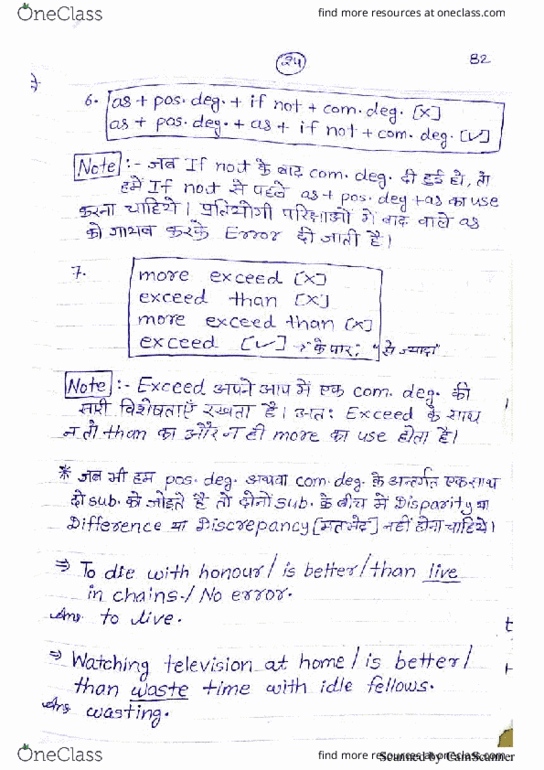 OneClass
find more resources at oneclass.com
24
82
6. as + pos. deg. + if not + com. deg. [x]
as + pos. deg. + as + if not + com. deg. [✓]
Note :- जब If not के बाद com. deg. दी हुई हो, तो
हमें If not से पहले as + pos. deg + as का use
करना चाहिये। प्रतियोगी परिक्षाओं में बाद वाले as
को गायब करके Error दी जाती है।
7.
more exceed [x]
exceed than [x]
more exceed than [x]
exceed [✓] → के पार; "से ज्यादा"
Note :- Exceed अपने आप में एक com. deg. की
सारी विशेषताएँ रखता है। अतः Exceed के साथ
न तो than का और न ही more का use होता है।
* जब भी हम pos. deg. अथवा com. deg. के अन्तर्गत एक साथ
दो sub. को जोड़ते है तो दोनों sub. के बीच में Disparity या
Difference या Discrepancy [मतभेद] नहीं होना चाहिये।
⇒ To die with honour / is better / than live
in chains. / No error.
Ans to live.
⇒ Watching television at home / is better /
than waste time with idle fellows.
Ans wasting.
OneClass
find more resources at oneclass.com
Scanned by CamScanner